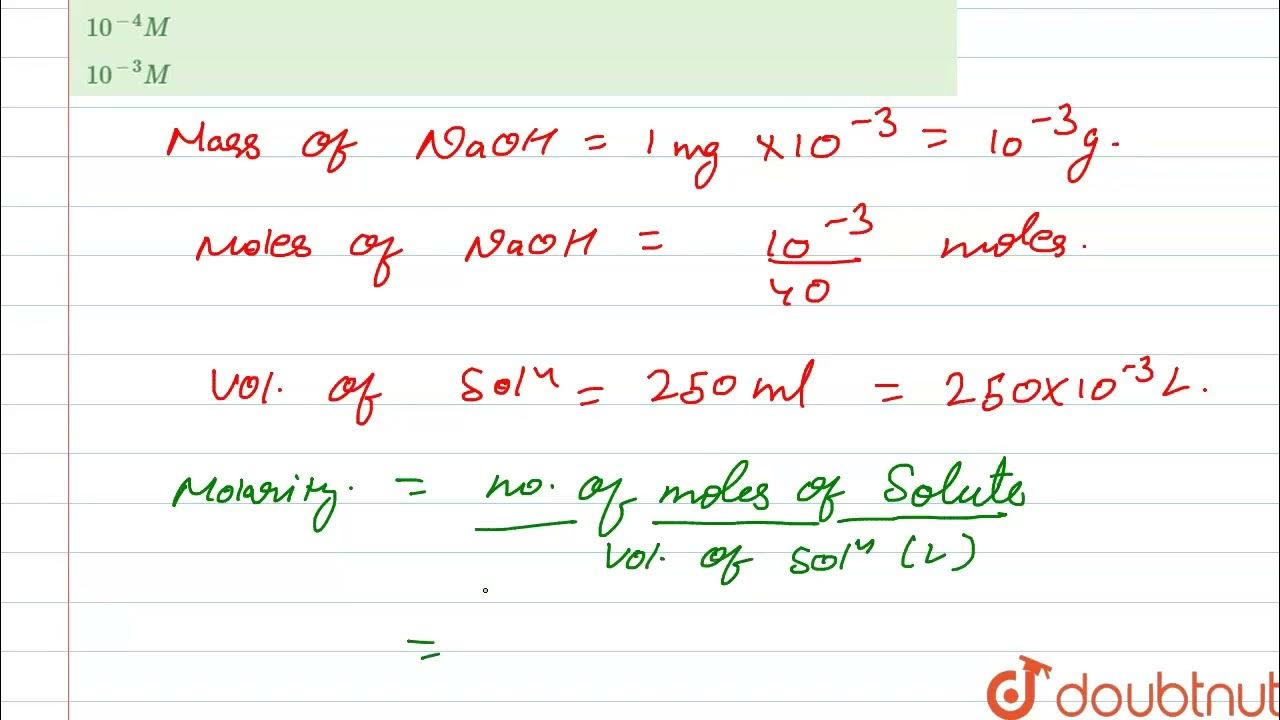 10⁻⁴M
10⁻³M
Mass of NaOH = 1 mg × 10⁻³ = 10⁻³ g.
Moles of NaOH = 10⁻³/40 moles.
Vol. of Solⁿ = 250 ml = 250×10⁻³ L.
Molarity. = no. of moles of Solute
Vol. of Solⁿ (L)
=
doubtnut